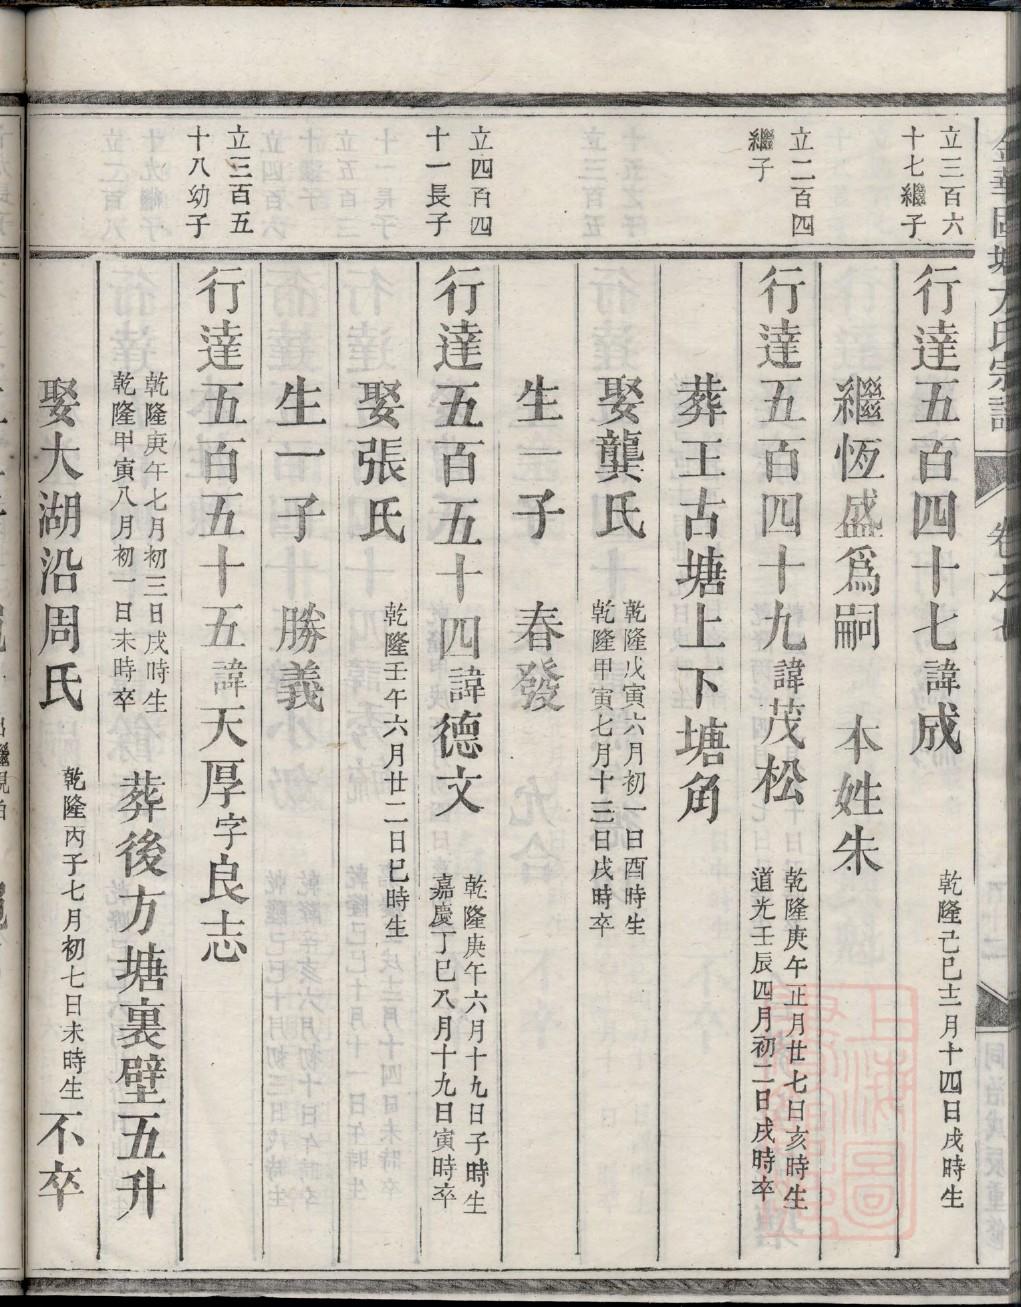 立三百六
十七繼子
行達五百四十七諱成
乾隆己巳十二月十四日戌時生
繼恆盛爲嗣 本姓朱
立二百四
繼子
行達五百四十九諱茂松
乾隆庚午正月廿七日亥時生
道光壬辰四月初二日戌時卒
葬王古塘上下塘角
娶龔氏
乾隆戊寅六月初一日酉時生
乾隆甲寅七月十三日戌時卒
生一子 春發
立四百四
十一長子
行達五百五十四諱德文
乾隆庚午六月十九日子時生
嘉慶丁巳八月十九日寅時卒
娶張氏
乾隆壬午六月廿二日巳時生
生一子 勝義
立三百五
十八幼子
行達五百五十五諱天厚字良志
乾隆庚午七月初三日戌時生
乾隆甲寅八月初一日未時卒
葬後方塘裏壁五升
娶大湖沿周氏
乾隆丙子七月初七日未時生
不卒